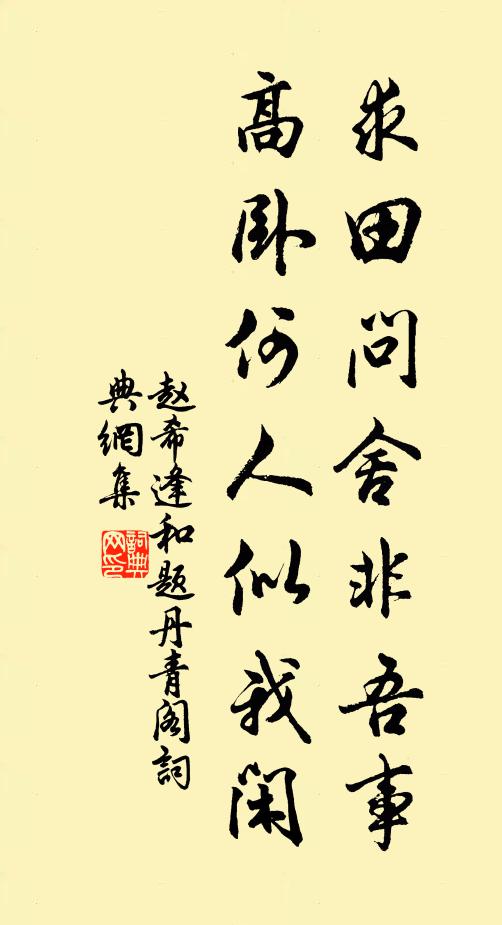 求田問舍非吾事
高卧何人似我閑
赵希逢和题丹青阁詞
典網集
詞典
网印